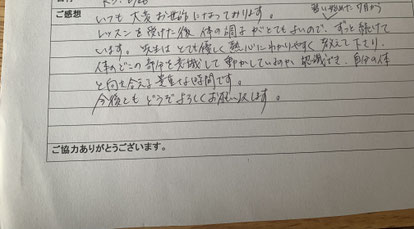 ご感想
いつも大変お世話になっております。
レッスンを受けた後、体の調子がとてもよいので、ずっと続けて
います。先生はとても優しく熱心にわかりやすく教えて下さり、
体のどこの部分を意識して動かしているのか認識でき、自分の体
と向き合える貴重な時間です。
今後ともどうぞよろしくお願い致します。
ご協力ありがとうございます。